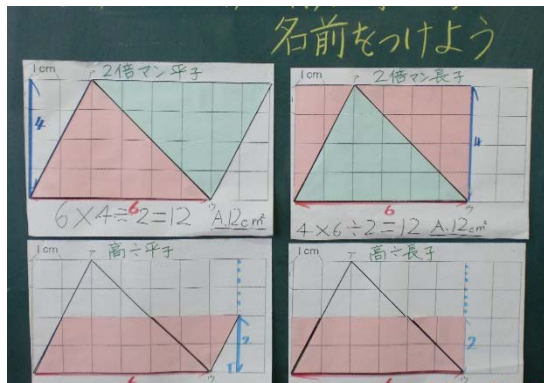 名前をつけよう
1cm
2倍マン平子
ア
4
6
ウ
6×4÷2=12 A.12cm²
1cm
2倍マン長子
ア
4
6
ウ
4×6÷2=12 A.12cm²
1cm
高÷平子
ア
2
ウ
6
1cm
高÷長子
ア
2
ウ
6